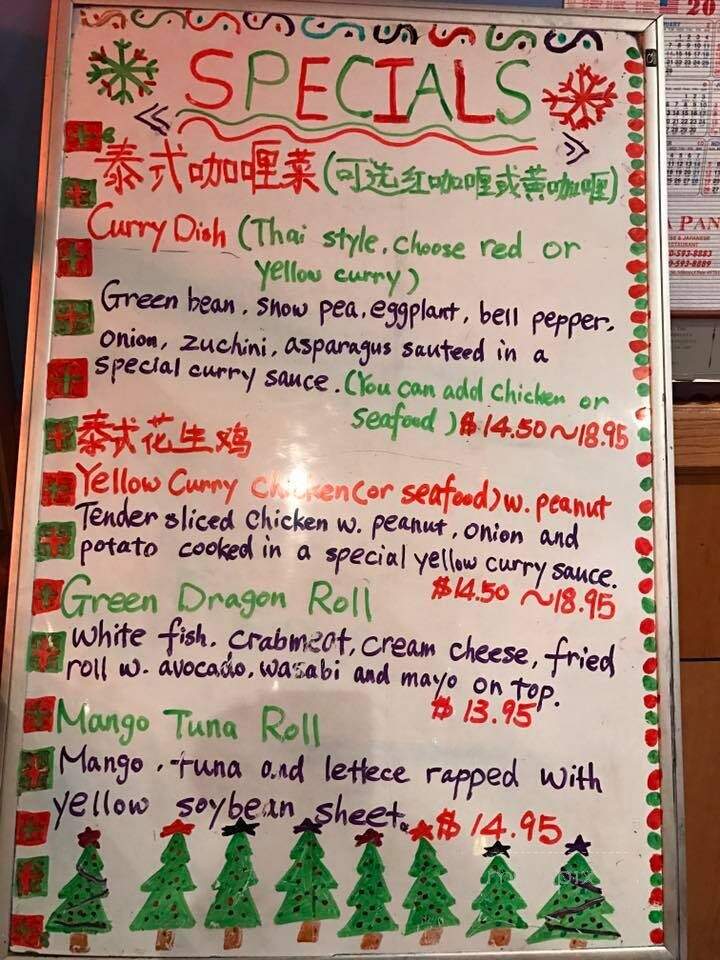 SPECIALS
泰式咖喱菜(可选红咖喱或黄咖喱)
Curry Dish (Thai style, choose red or
yellow curry)
Green bean, snow pea, eggplant, bell pepper,
onion, zuchini, asparagus sauteed in a
special curry sauce. (You can add chicken or
seafood) $14.50~18.95
泰式花生鸡
Yellow Curry chicken (or seafood) w. peanut
Tender sliced chicken w. peanut, onion and
potato cooked in a special yellow curry sauce.
$14.50 ~18.95
Green Dragon Roll
White fish, crabmeat, cream cheese, fried
roll w. avocado, wasabi and mayo on top.
$13.95
Mango Tuna Roll
Mango, tuna and lettece rapped with
yellow soybean sheet. $14.95
20
PAN
& JAPANESE
RESTAURANT
593-8883
593-8089